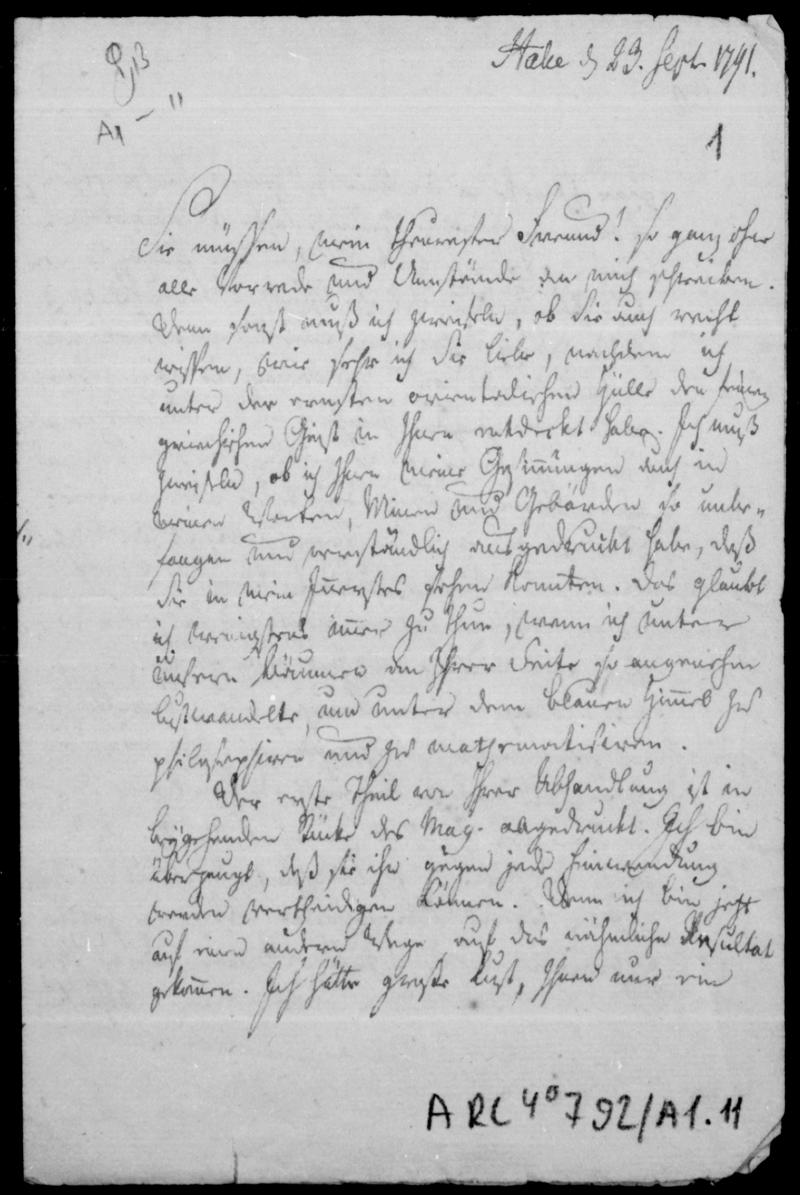 Halle d 23. Sept. 1791.
A1 - 11
1
Sie müssen, mein theurester Freund! so ganz ohne
alle Vorrede und Umstände an mich schreiben.
Denn sonst muß ich zweifeln, ob Sie auch recht
wissen, wie sehr ich Sie liebe, nachdem ich
unter der ernsten orientalischen Hülle den feinen
griechischen Geist in Ihnen entdeckt habe. Ich muß
zweifeln, ob ich Ihnen meine Gesinnungen auch in
meinen Worten, Minen und Gebärden so unbe-
fangen und verständlich ausgedruckt habe, daß
Sie in mein Innerstes sehen konnten. Das glaubt
ich wenigstens immer zu thun, wenn ich unter
unsern Bäumen an Ihrer Seite so angenehm
lustwandelte, um unter dem blauen Himmel zu
philosophiren und zu mathematisiren.
Der erste Theil von Ihrer Abhandlung ist in
beygehendem Stücke des Mag. abgedruckt. Ich bin
überzeugt, daß Sie ihn gegen jede Einwendung
werden vertheidigen können. Denn ich bin jetzt
auf einem andern Wege auf das nähmliche Resultat
gekommen. Ich hätte große Lust, Ihnen nur ein
ARC 4° 792/A1.11